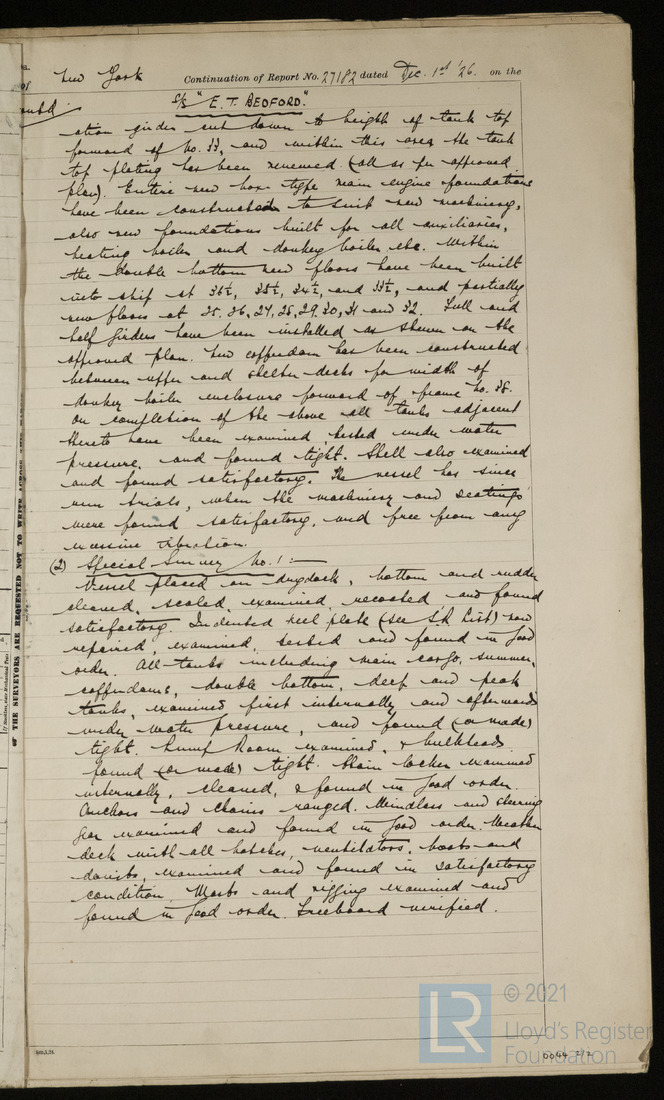 New York Continuation of Report No. 27182 dated Dec. 1st '26. on the
S/S "E. T. BEDFORD."
ation girder cut down to height of tank top
forward of No. 33, and within this area the tank
top plating has been renewed (all as per approved
plan). Entire new box type main engine foundations
have been constructed to suit new machinery,
also new foundations built for all auxiliaries,
heating boiler and donkey boiler etc. Within
the double bottom new floors have been built
into ship at 36½, 35½, 34½, and 33½, and partially
new floors at 25, 26, 27, 28, 29, 30, 31 and 32. Full and
half girders have been installed as shewn on the
approved plan. New cofferdam has been constructed
between upper and shelter decks for width of
donkey boiler enclosure forward of frame No. 38.
On completion of the above all tanks adjacent
thereto have been examined, tested under water
pressure, and found tight. Shell also examined
and found satisfactory. The vessel has since
run trials, when the machinery and seatings
were found satisfactory, and free from any
excessive vibration.
(2) Special Survey No. 1 :-
Vessel placed on drydock, bottom and rudder
cleaned, scaled, examined, recoated and found
satisfactory. Indented keel plate (see S.R. List) now
repaired, examined, tested and found in good
order. All tanks including main cargo, summer,
cofferdams, double bottom, deep and peak
tanks, examined first internally and afterwards
under water pressure, and found (or made)
tight. Pump Room examined, & bulkheads
found (or made) tight. Chain locker examined
internally, cleaned, & found in good order.
Anchors and chains ranged. Windlass and steering
gear examined and found in good order. Weather
deck with all hatches, ventilators, boats and
davits, examined and found in satisfactory
condition. Masts and rigging examined and
found in good order. Freeboard verified.
OF THE SURVEYORS ARE REQUESTED NOT TO WRITE ACROSS THIS MARGIN
LR © 2021
Lloyd's Register
Foundation
0044 2/2